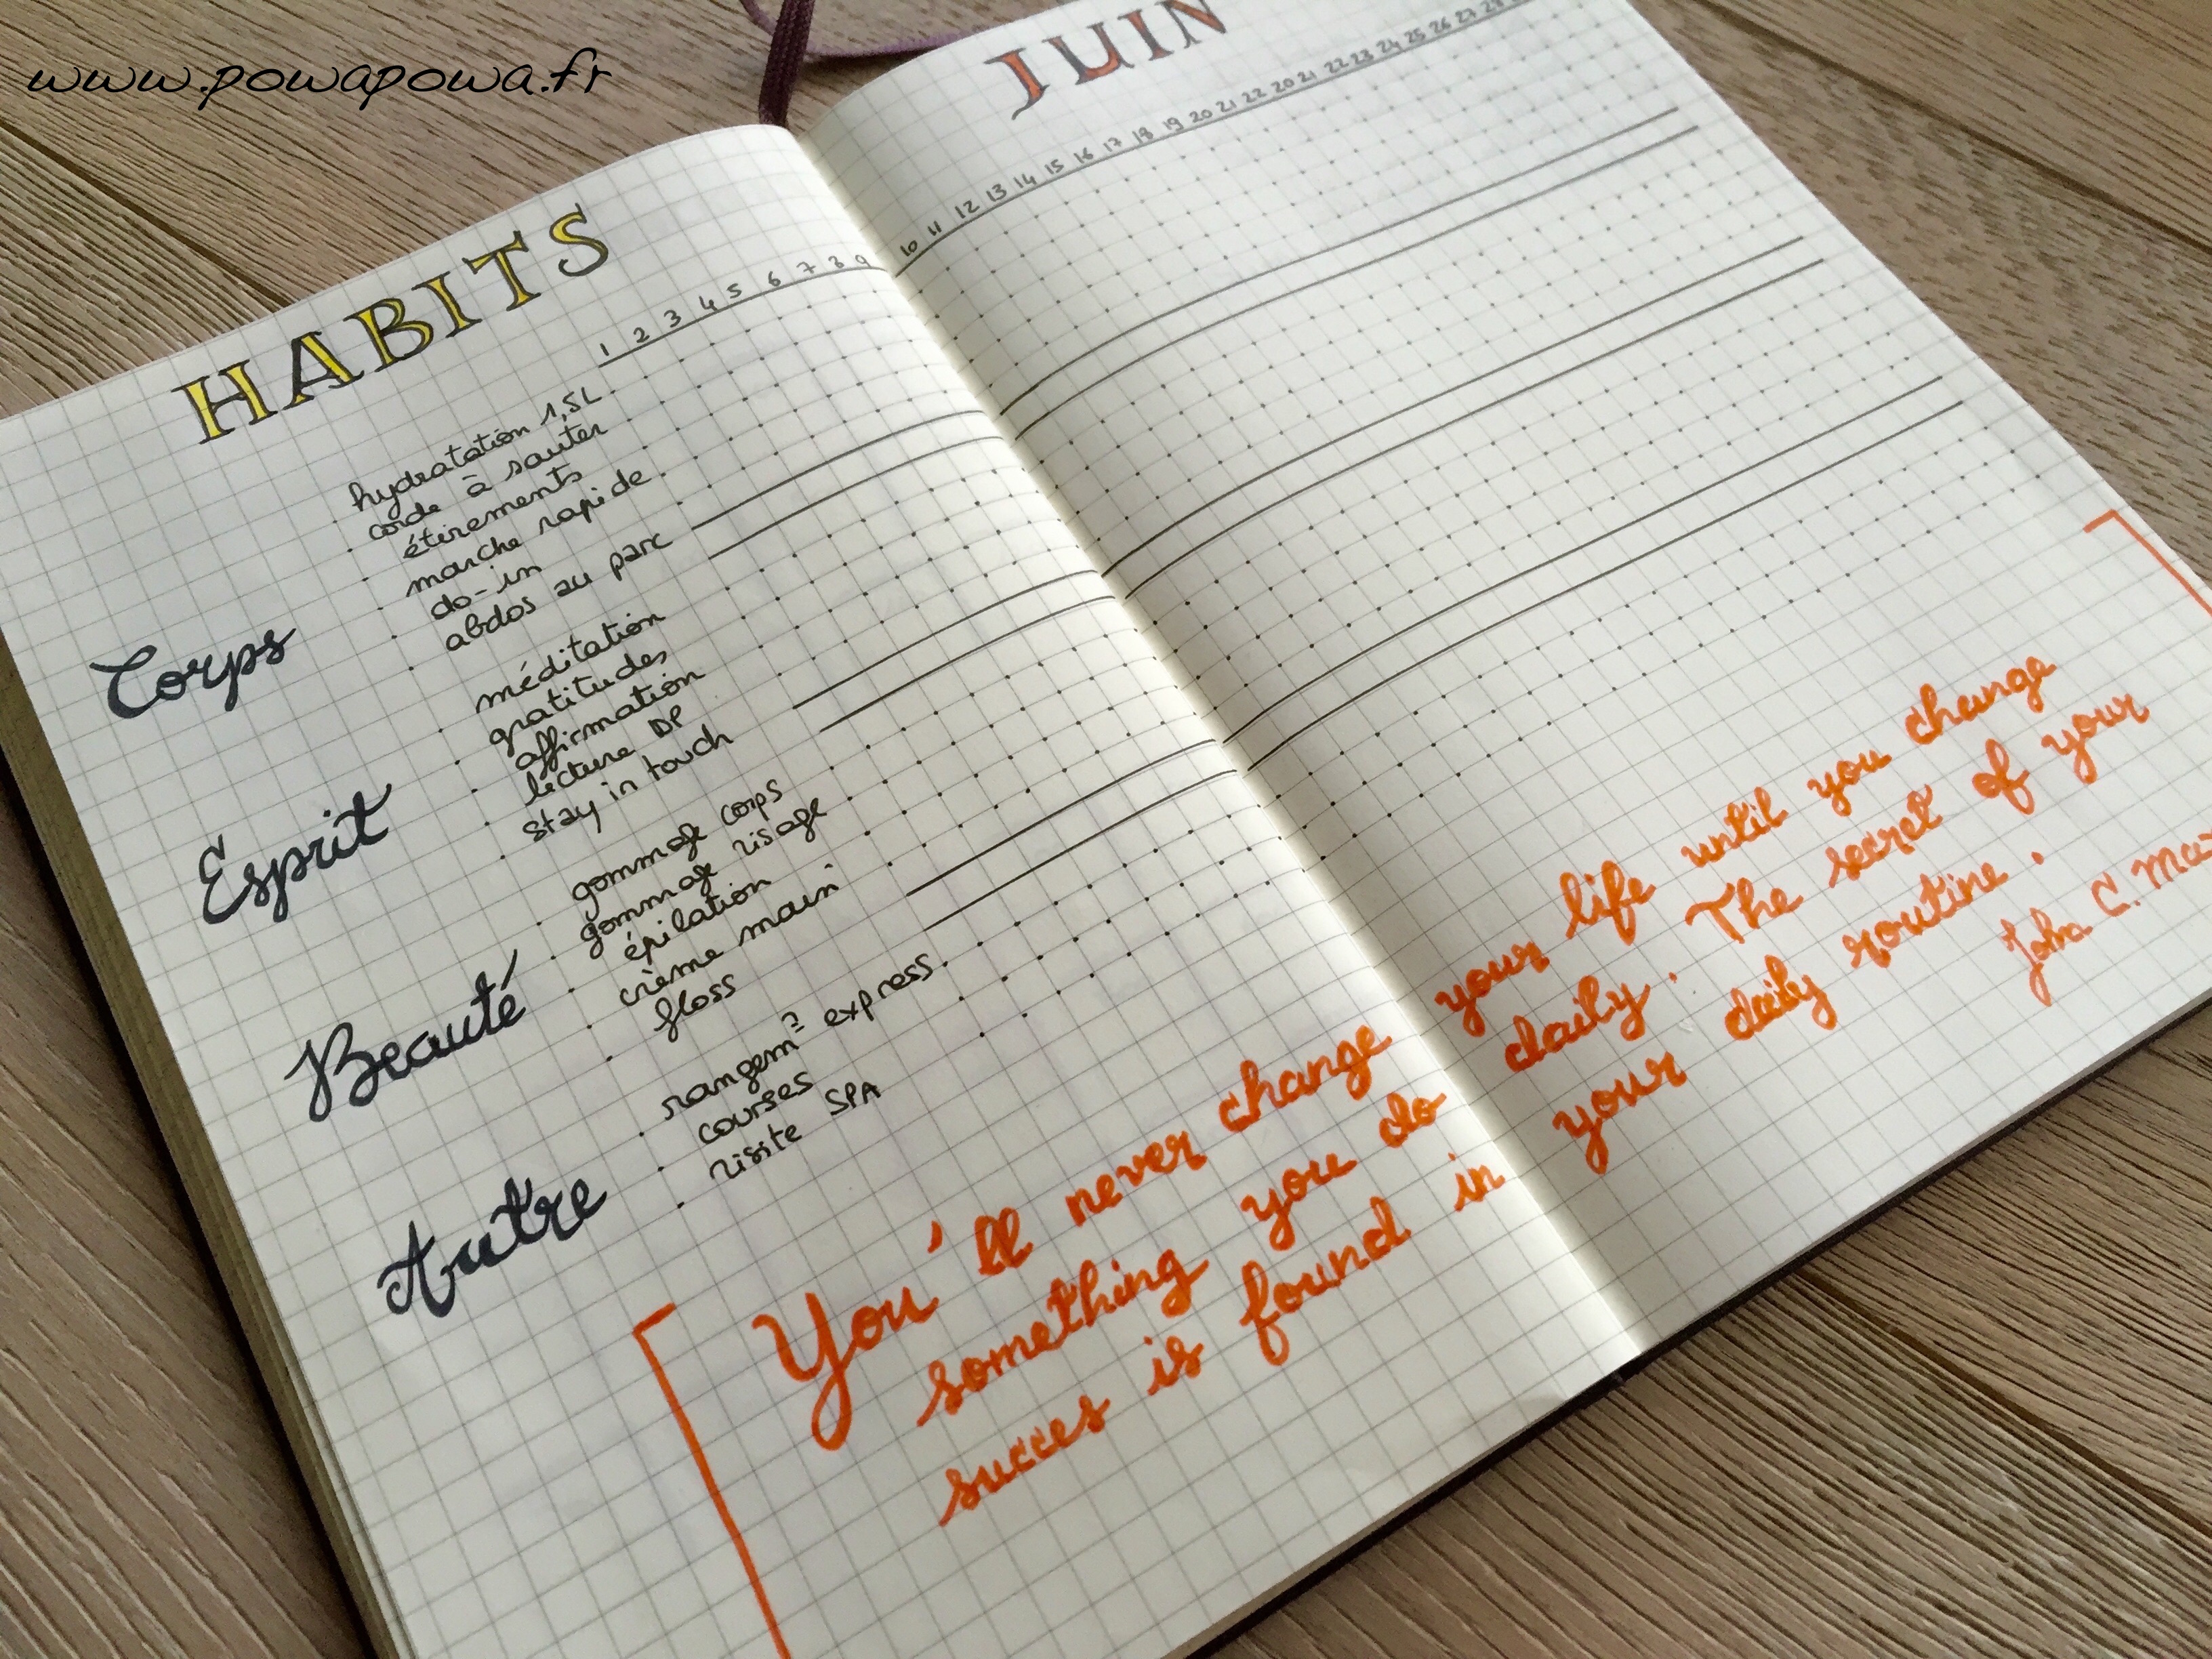 www.powapowa.fr
HABITS
JUIN
1 2 3 4 5 6 7 8 9 10 11 12 13 14 15 16 17 18 19 20 21 22 20 21 22 23 24 25 26 27 28
Corps
hydratation 1,5L
corde à sauter
étirements
marche rapide
do-in
abdos au parc
Esprit
méditation
gratitudes
affirmation
lecture DP
stay in touch
Beauté
gommage corps
gommage visage
épilation
crème main
floss
Autre
rangemt express
courses
visite SPA
You'll never change your life until you change
something you do daily. The secret of your
succes is found in your daily routine.
John C.